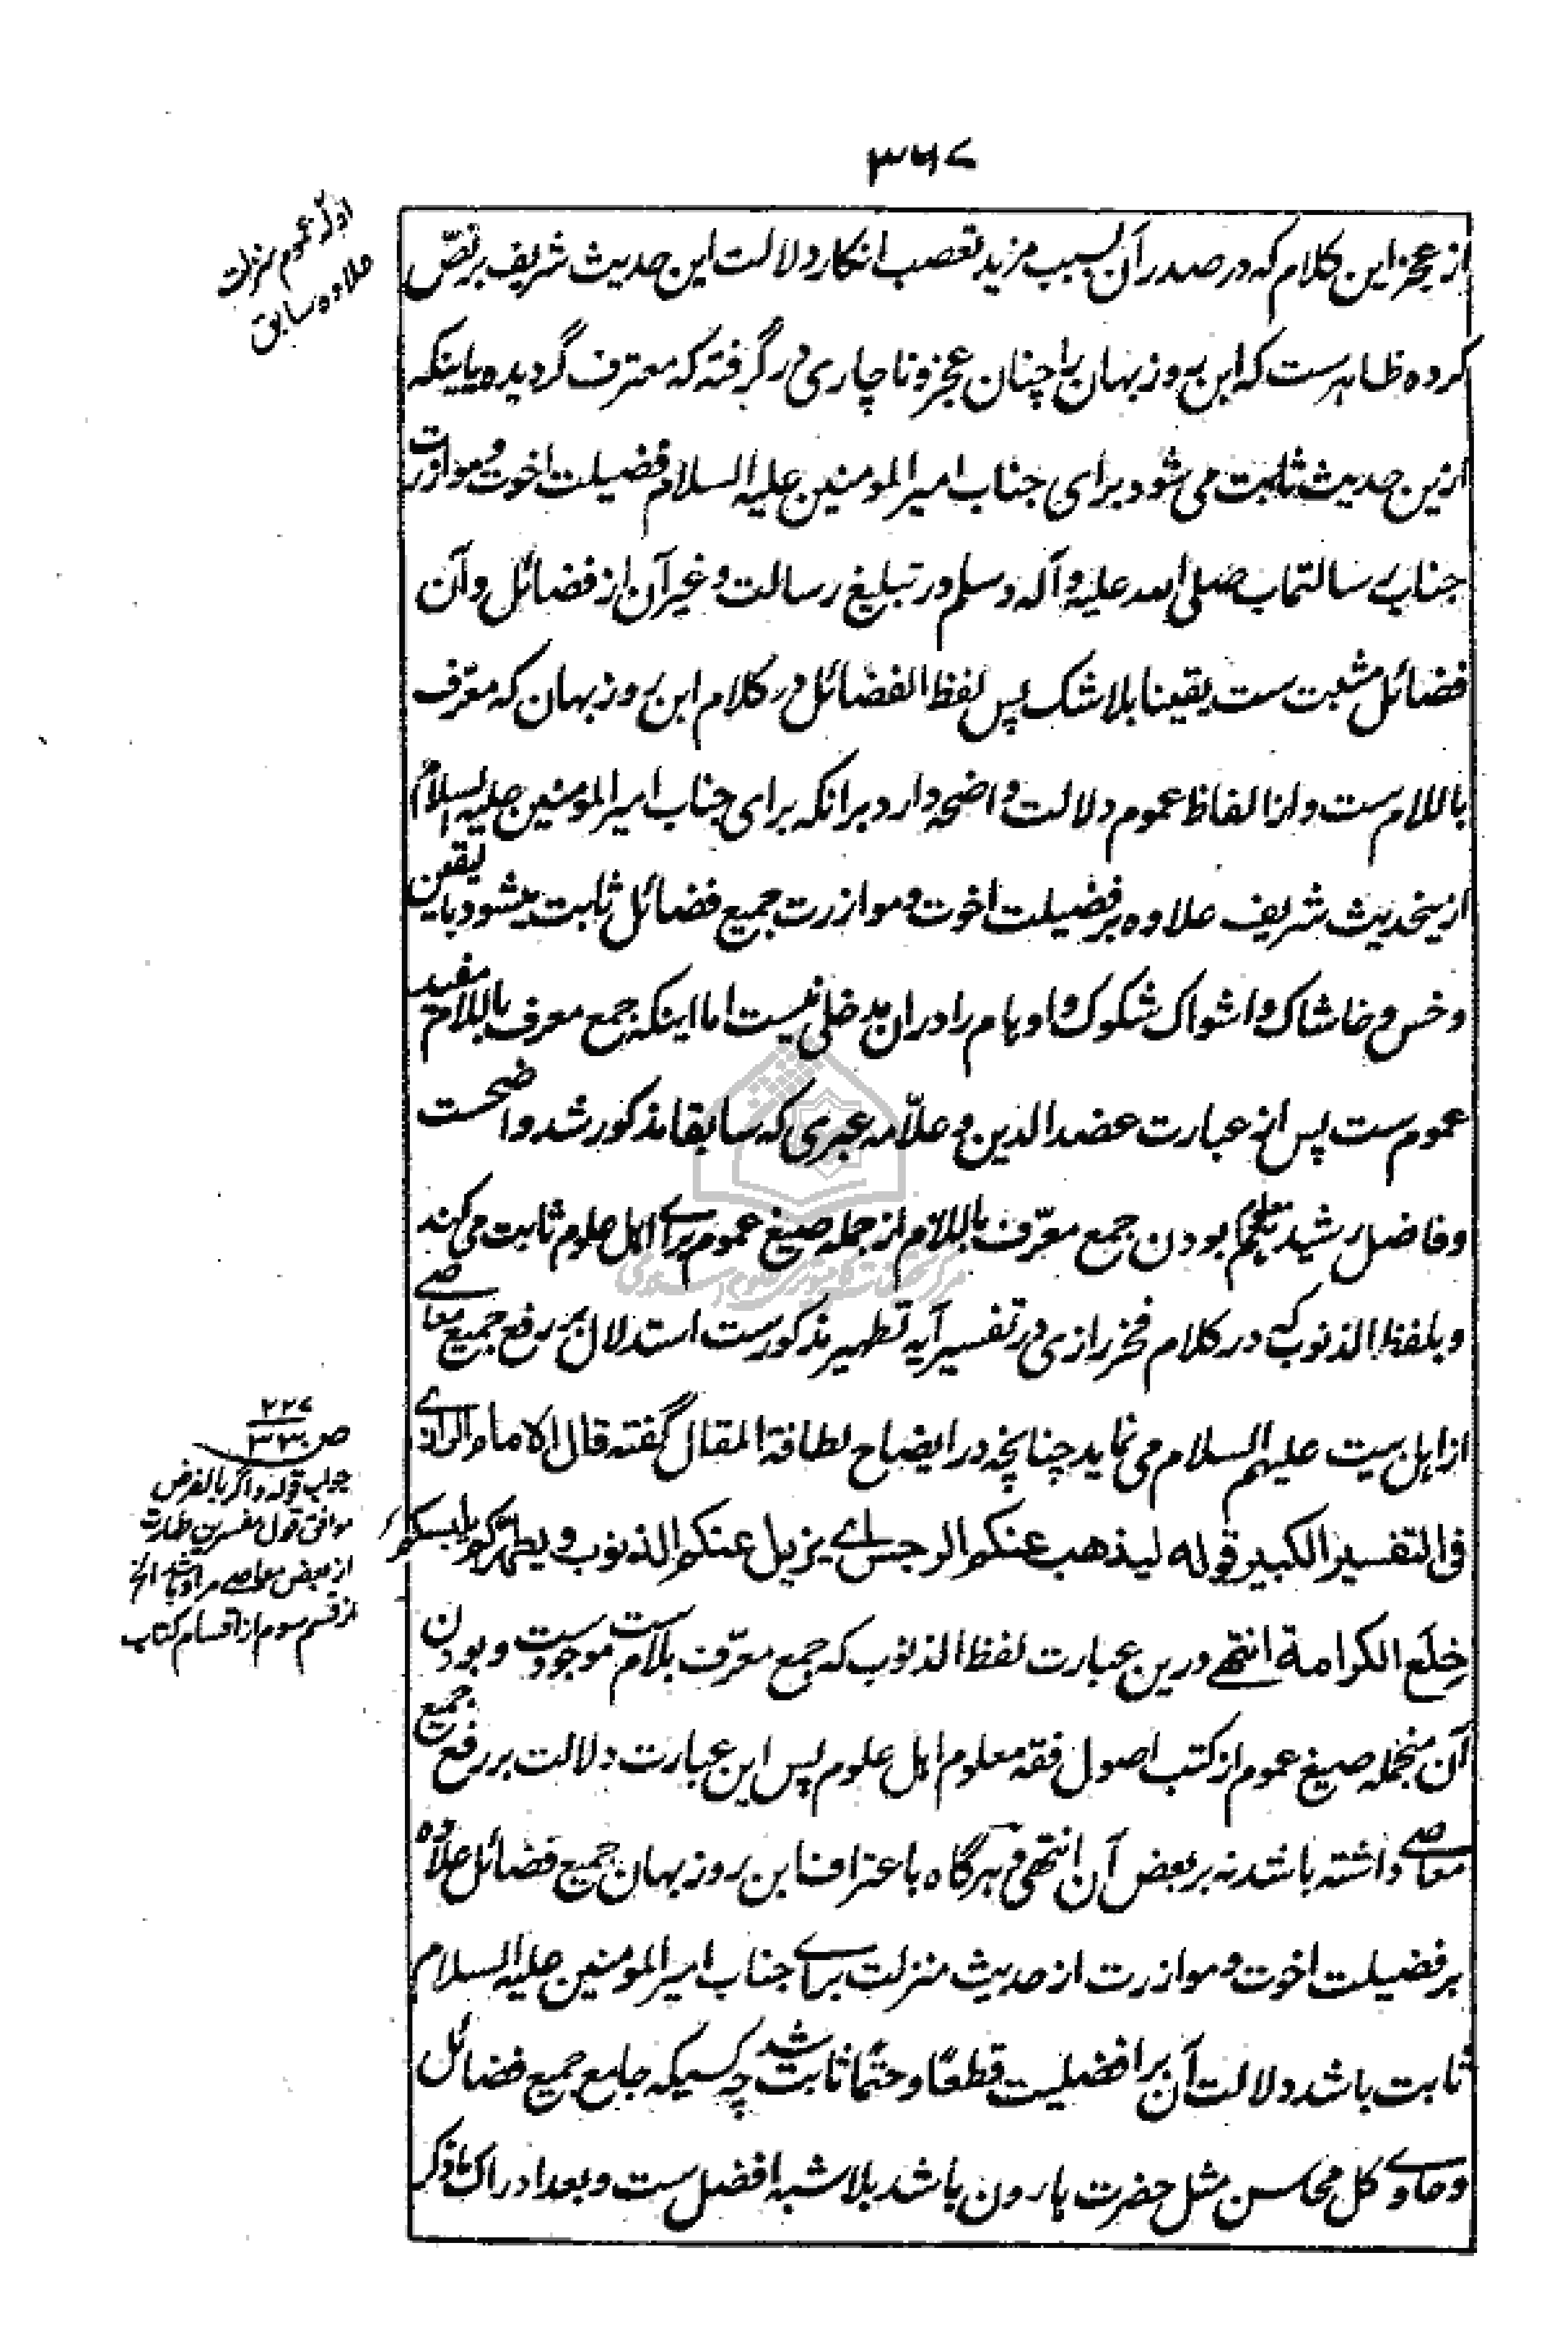 ۳۶۷
ادلّهٔ عموم منزلت
علاوه سابق
از عجز این کلام که در صدر آن بسبب مزید تعصب انکار دلالت این حدیث شریف بر نصّ
کرده ظاهرست که ابن روزبهان را چنان عجز و ناچاری در گرفته که معترف گردیده باینکه
ازین حدیث ثابت می شود برای جناب امیر المومنین علیه السلام فضیلت اخوت و موازرت
جناب رسالتماب صلی الله علیه و آله وسلم در تبلیغ رسالت و غیر آن از فضائل و آن
فضائل مثبت ست یقینا بلا شک پس لفظ الفضائل در کلام ابن روزبهان که معرّف
باللام ست و از الفاظ عموم دلالت واضحه دارد برانکه برای جناب امیر المومنین علیه السلام
ازینحدیث شریف علاوه بر فضیلت اخوت و موازرت جمیع فضائل ثابت میشود بالیقین
و خس و خاشاک و اشواک شکوک و اوهام را دران مدخلی نیست اما اینکه جمع معرف باللام مفید
عموم ست پس از عبارت عضد الدین و علّامه عبری که سابقا مذکور شد واضحست
و فاضل رشید بودن جمع معرّف باللام از جمله صیغ عموم برای اهل علوم ثابت می کند
و بلفظ الذنوب که در کلام فخر رازی در تفسیر آیه تطهیر مذکورست استدلال بر رفع جمیع معاصی
از اهل بیت علیهم السلام می نماید چنانچه در ایضاح لطافة المقال گفته قال الامام الرازی
فی التفسیر الکبیر قوله لیذهب عنکم الرجس ای یزیل عنکم الذنوب و یطهّرکم یلبسکم
خِلَع الکرامة انتهی درین عبارت لفظ الذنوب که جمع معرّف بلام ست موجودست و بودن
آن منجمله صیغ عموم از کتب اصول فقه معلوم اهل علوم پس این عبارت دلالت بر رفع جمیع
معاصی داشته باشد نه بر بعض آن انتهی و هرگاه باعتراف ابن روزبهان جمیع فضائل علاوه
بر فضیلت اخوت و موازرت از حدیث منزلت برای جناب امیر المومنین علیه السلام
ثابت باشد دلالت آن بر افضلیت قطعًا و حتمًا ثابت شد چه کسیکه جامع جمیع فضائل
و حاوی کل محاسن مثل حضرت هارون باشد بلا شبه افضل ست و بعد ادراک ما ذکر
۲۲۷
ص ۳۳۰
جواب قوله و اگر بالفرض
موافق قول مفسرین طهارت
از بعض معاصی مراد باشد الخ
از قسم سوم از اقسام کتاب